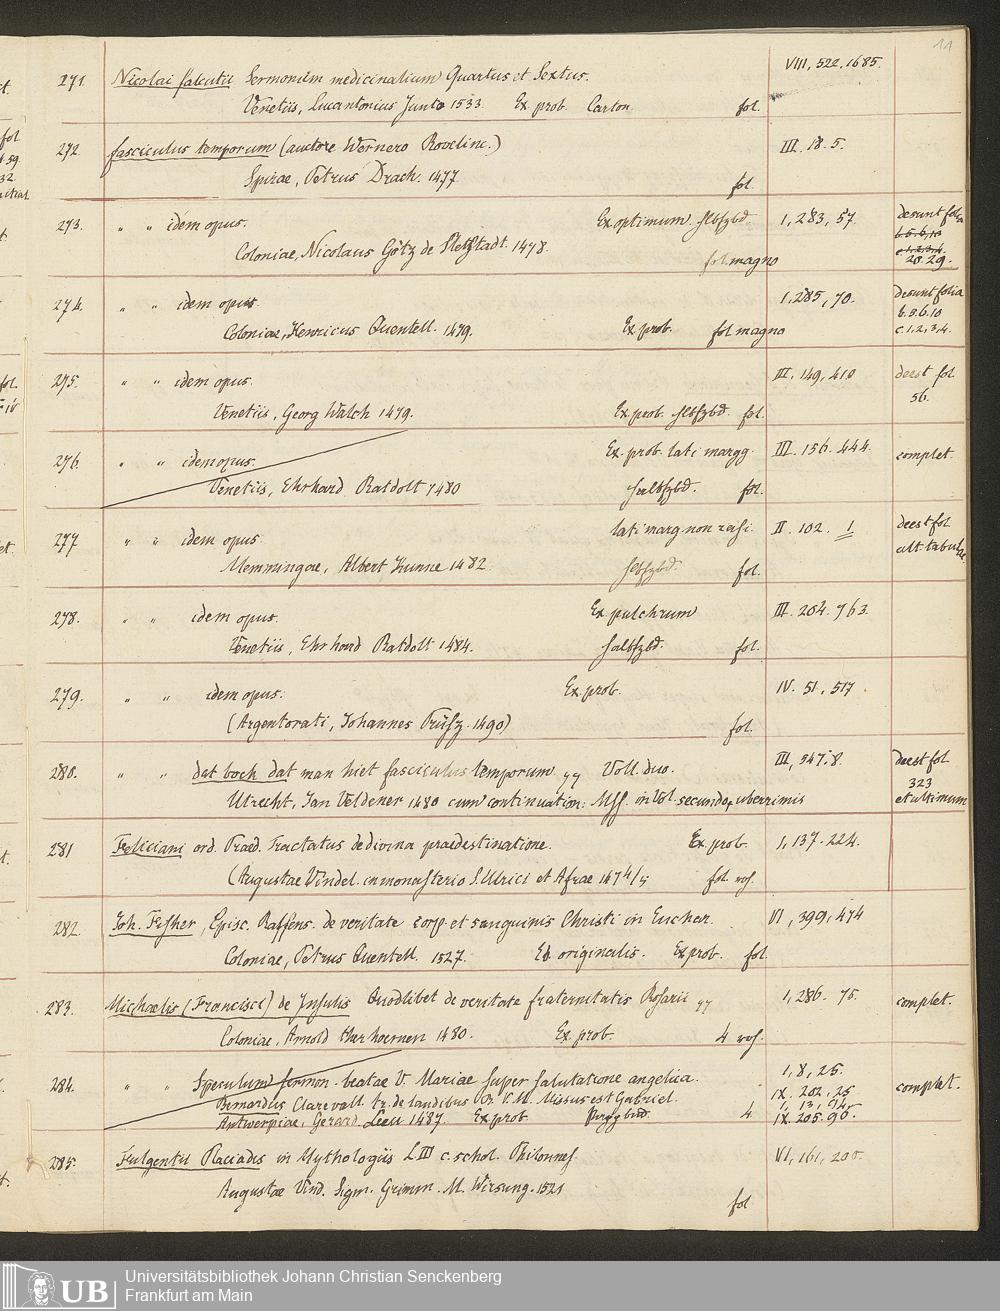 11
271. Nicolai falcutii Sermonum medicinalium Quartus et Sextus. VIII, 522. 1685.
Venetiis, Lucantonius Junta 1533. Ex. prob. Carton. fol.
272. fasciculus temporum (auctore Wernero Rovelinc.) III. 18. 5.
Spirae, Petrus Drach. 1477 fol.
273. " " idem opus. Ex. optimum. Hlbfzbd 1, 283, 57. desunt folia
b. 5. 6. 10
c 1, 2, 3, 4.
Coloniae, Nicolaus Götz de Sletzstadt. 1478. fol. magno 20. 29.
274. " " idem opus. 1, 285, 70. desunt folia
b. 5. 6. 10
Coloniae, Henricus Quentell. 1479. Ex prob. fol. magno c. 1, 2, 3, 4.
275. " " idem opus. III. 149, 410 deest fol
56.
Venetiis, Georg Walch 1479. Ex. prob. Hlbfzbd. fol.
276. " " idem opus. Ex. prob. lati margg. III. 156. 444. complet.
Venetiis, Ehrhard Ratdolt 1480 Halbfzbd. fol.
277 " " idem opus. lati marg. non rasi. II. 102. 1 deest fol
ult. tabulae
Memmingae, Albert Kunne 1482. Hlbfzbd. fol.
278. " " idem opus. Ex pulchrum III. 204. 763.
Venetiis, Ehrhard Ratdolt 1484. Halbfzbd. fol.
279. " " idem opus. Ex. prob. IV. 51, 517
(Argentorati, Johannes Prüsz. 1490) fol.
280. " " dat boek dat man hiet fasciculus temporum Voll. duo. III, 547. 8. deest fol
323
Utrecht, Jan Veldener 1480 cum continuation: Mss. in Vol. secundo, uberrimis et ultimum
281 Feliciani ord. Praed. Tractatus de divina praedestinatione. Ex. prob. 1, 137. 224.
(Augustae Vindel. in monasterio S. Ulrici et Afrae 1474/5 fol.
282. Joh. Fisher, Episc. Roffens. de veritate corp. et sanguinis Christi in Euchar. VI, 399, 474
Coloniae, Petrus Quentell. 1527. Ed. originalis. Ex prob. fol.
283. Michaelis (Francisci) de Insulis Quodlibet de veritate fraternitatis Rosarii 1, 286. 75. complet.
Coloniae, Arnold ther hoernen 1480. Ex. prob. 4
284. " " Speculum sermon. beatae V. Mariae super salutatione angelica. 1, 8, 25. complet.
Bernardus Clarevall. tr. de laudibus B. V. M. Missus est Gabriel. IX. 202, 25
1, 13, 94.
Antwerpiae, Gerard. Leeu 1487. Ex prob. 4 IX. 205. 90.
285. Fulgentii Placiadis in Mythologiis L. III c. schol. Philomus. VI, 161, 200.
Augustae Vind. Sigm. Grimm. M. Wirsung. 1521 fol
UB
Universitätsbibliothek Johann Christian Senckenberg
Frankfurt am Main